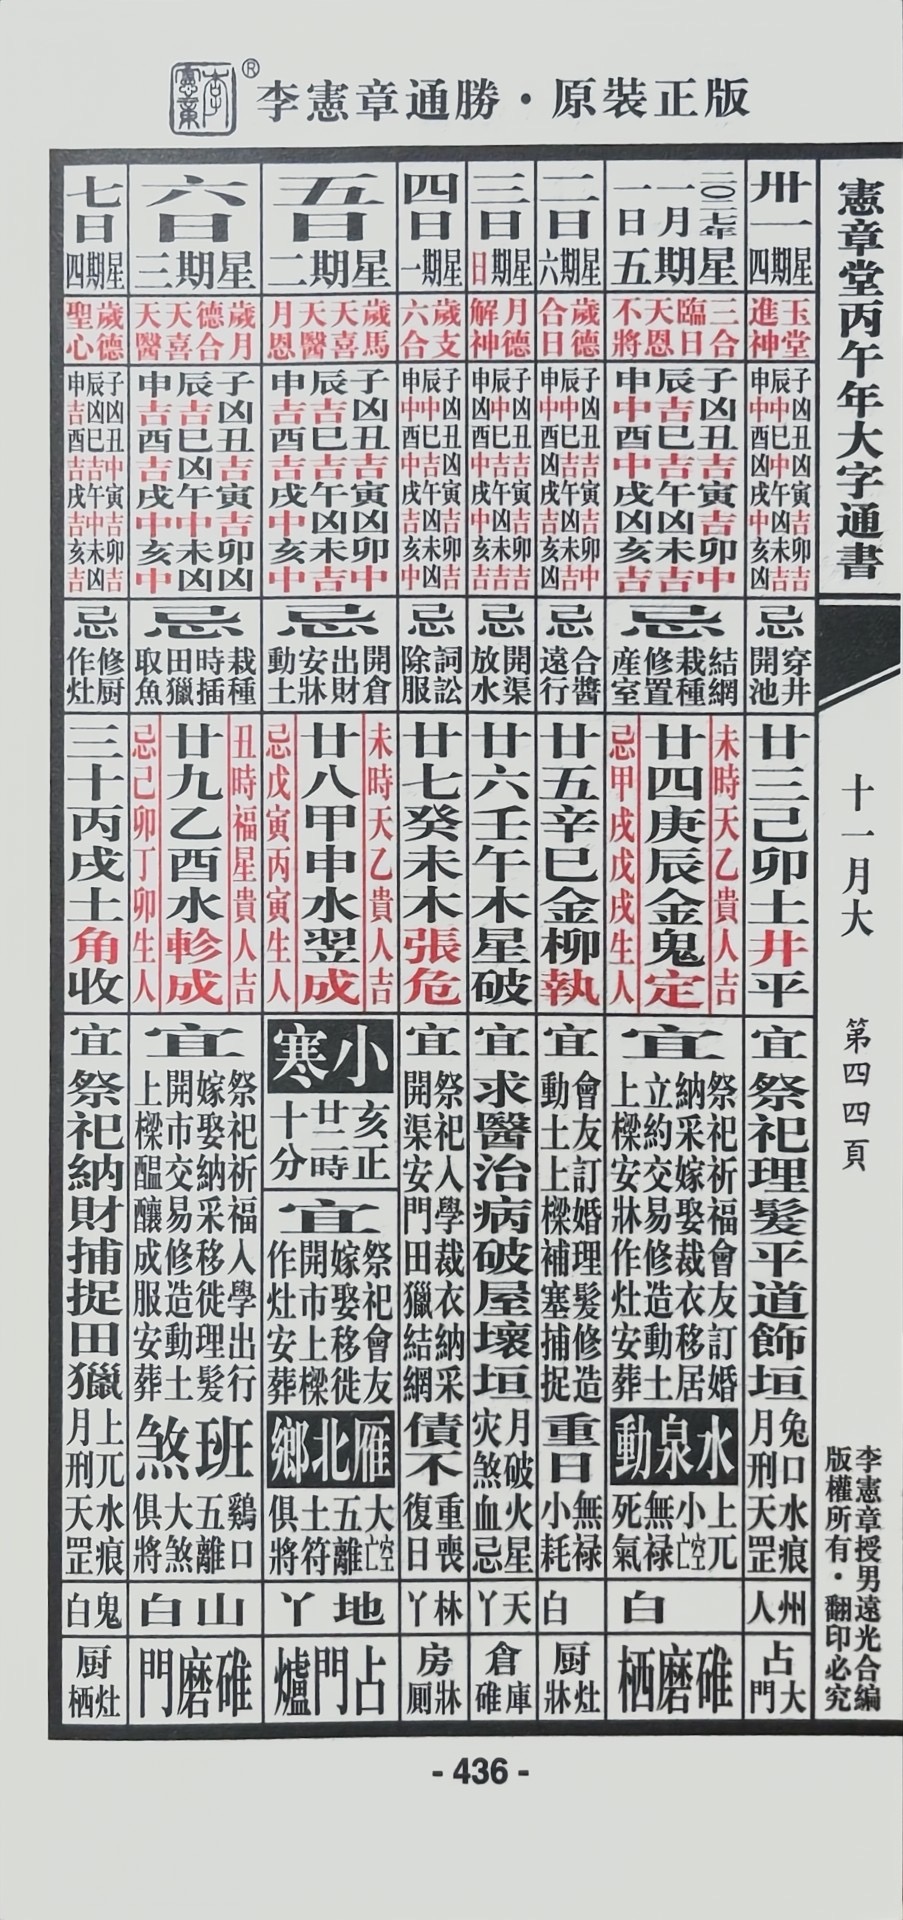 李憲章
®
李憲章通勝・原裝正版
憲章堂丙午年大字通書
十一月大
第四四頁
李憲章授男遠光合編
版權所有・翻印必究
卅一
星期四
玉堂
進神
子凶丑凶寅吉卯吉
辰中巳中午凶未吉
申中酉凶戌中亥凶
忌
穿井
開池
廿三己卯土井平
宜
祭祀理髮平道飾垣
兔口水痕
月刑天罡
州人
占大門
二〇二七年
一月
一日
星期五
三合
臨日
天恩
不將
子凶丑吉寅吉卯中
辰吉巳吉午凶未吉
申中酉中戌凶亥吉
忌
結網
栽種
修置
産室
未時天乙貴人吉
廿四庚辰金鬼定
忌甲戌戊戌生人
宜
祭祀祈福會友訂婚
納采嫁娶裁衣移居
立約交易修造動土
上樑安牀作灶安葬
水泉動
上兀
小空亡
無禄
死氣
白
碓磨栖
二日
星期六
歲德
合日
子凶丑吉寅吉卯中
辰中巳吉午吉未吉
申中酉凶戌凶亥凶
忌
合醬
遠行
廿五辛巳金柳執
宜
會友訂婚理髮修造
動土上樑補塞捕捉
重日
無禄
小耗
白
厨灶牀
三日
星期日
月德
解神
子凶丑吉寅吉卯吉
辰中巳吉午凶未吉
申凶酉中戌中亥吉
忌
開渠
放水
廿六壬午木星破
宜
求醫治病破屋壞垣
月破火星
灾煞血忌
天丫
倉庫碓
四日
星期一
歲支
六合
子凶丑凶寅吉卯吉
辰中巳吉午凶未凶
申中酉中戌吉亥中
忌
詞訟
除服
廿七癸未木張危
宜
祭祀入學裁衣納采
開渠安門田獵結網
債不
重喪
復日
林丫
房牀厠
五日
星期二
歲馬
天喜
天醫
月恩
子凶丑吉寅凶卯中
辰吉巳吉午凶未吉
申吉酉吉戌中亥中
忌
開倉
出財
安牀
動土
未時天乙貴人吉
廿八甲申水翌成
忌戊寅丙寅生人
小寒
亥正
廿二時
十分
宜
祭祀會友
嫁娶移徙
開市上樑
作灶安葬
雁北鄉
大空亡
五離
土符
俱將
地丫
占門爐
六日
星期三
歲月
德合
天喜
天醫
子凶丑吉寅吉卯凶
辰吉巳凶午中未凶
申吉酉吉戌中亥中
忌
栽種
時插
田獵
取魚
丑時福星貴人吉
廿九乙酉水軫成
忌己卯丁卯生人
宜
祭祀祈福入學出行
嫁娶納采移徙理髮
開市交易修造動土
上樑醞釀成服安葬
班煞
鷄口
五離
大煞
俱將
山白
碓磨門
七日
星期四
歲德
聖心
子凶丑中寅吉卯吉
辰凶巳吉午中未凶
申吉酉吉戌吉亥吉
忌
修厨
作灶
三十丙戌土角收
宜
祭祀納財捕捉田獵
上兀水痕
月刑天罡
鬼白
厨灶栖
- 436 -